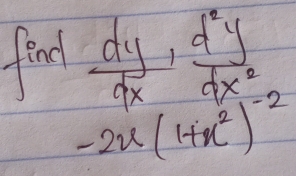 find dy/dx, d²y/dx²
-2x(1+x²)⁻²